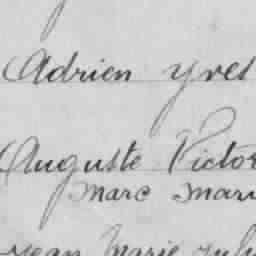 Adrien Yves
Auguste Victor
Marc Mari
Jean Marie Juli